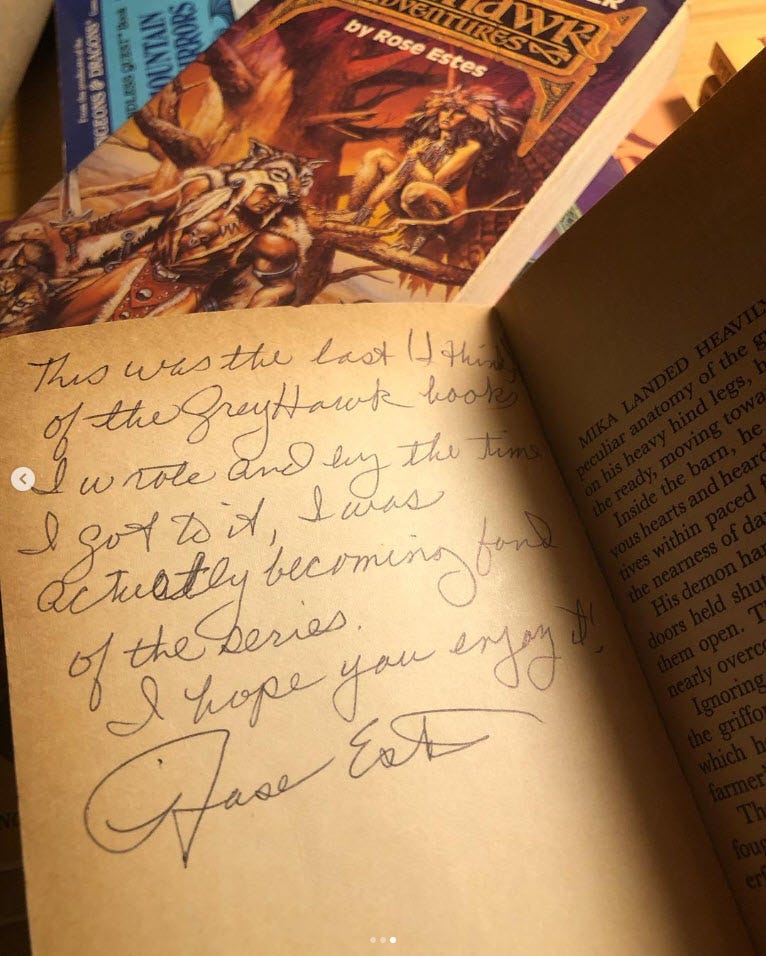 From the producers of the
NGEONS & DRAGONS®
DLESS QUEST Book
UNTAIN
RRORS
ER
HAWK
ADVENTURES
by Rose Estes
This was the last (I think)
of the GreyHawk book
I wrote and by the time
I got to it, I was
actually becoming fond
of the series.
I hope you enjoy it!
Rose Estes
MIKA LANDED HEAVILY
peculiar anatomy of the g
on his heavy hind legs, h
the ready, moving towa
Inside the barn, he
vous hearts and heard
tives within paced f
the nearness of da
His demon han
doors held shut
them open. T
nearly overco
Ignoring
the griffo
which h
farmer'
Th
foug